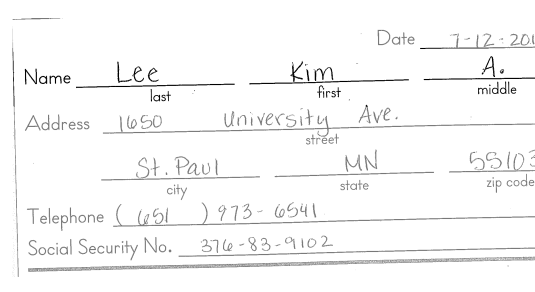 Date 7-12-201
Name Lee Kim A.
last first middle
Address 1650 University Ave.
street
St. Paul MN 55103
city state zip code
Telephone (651) 973-6541
Social Security No. 376-83-9102